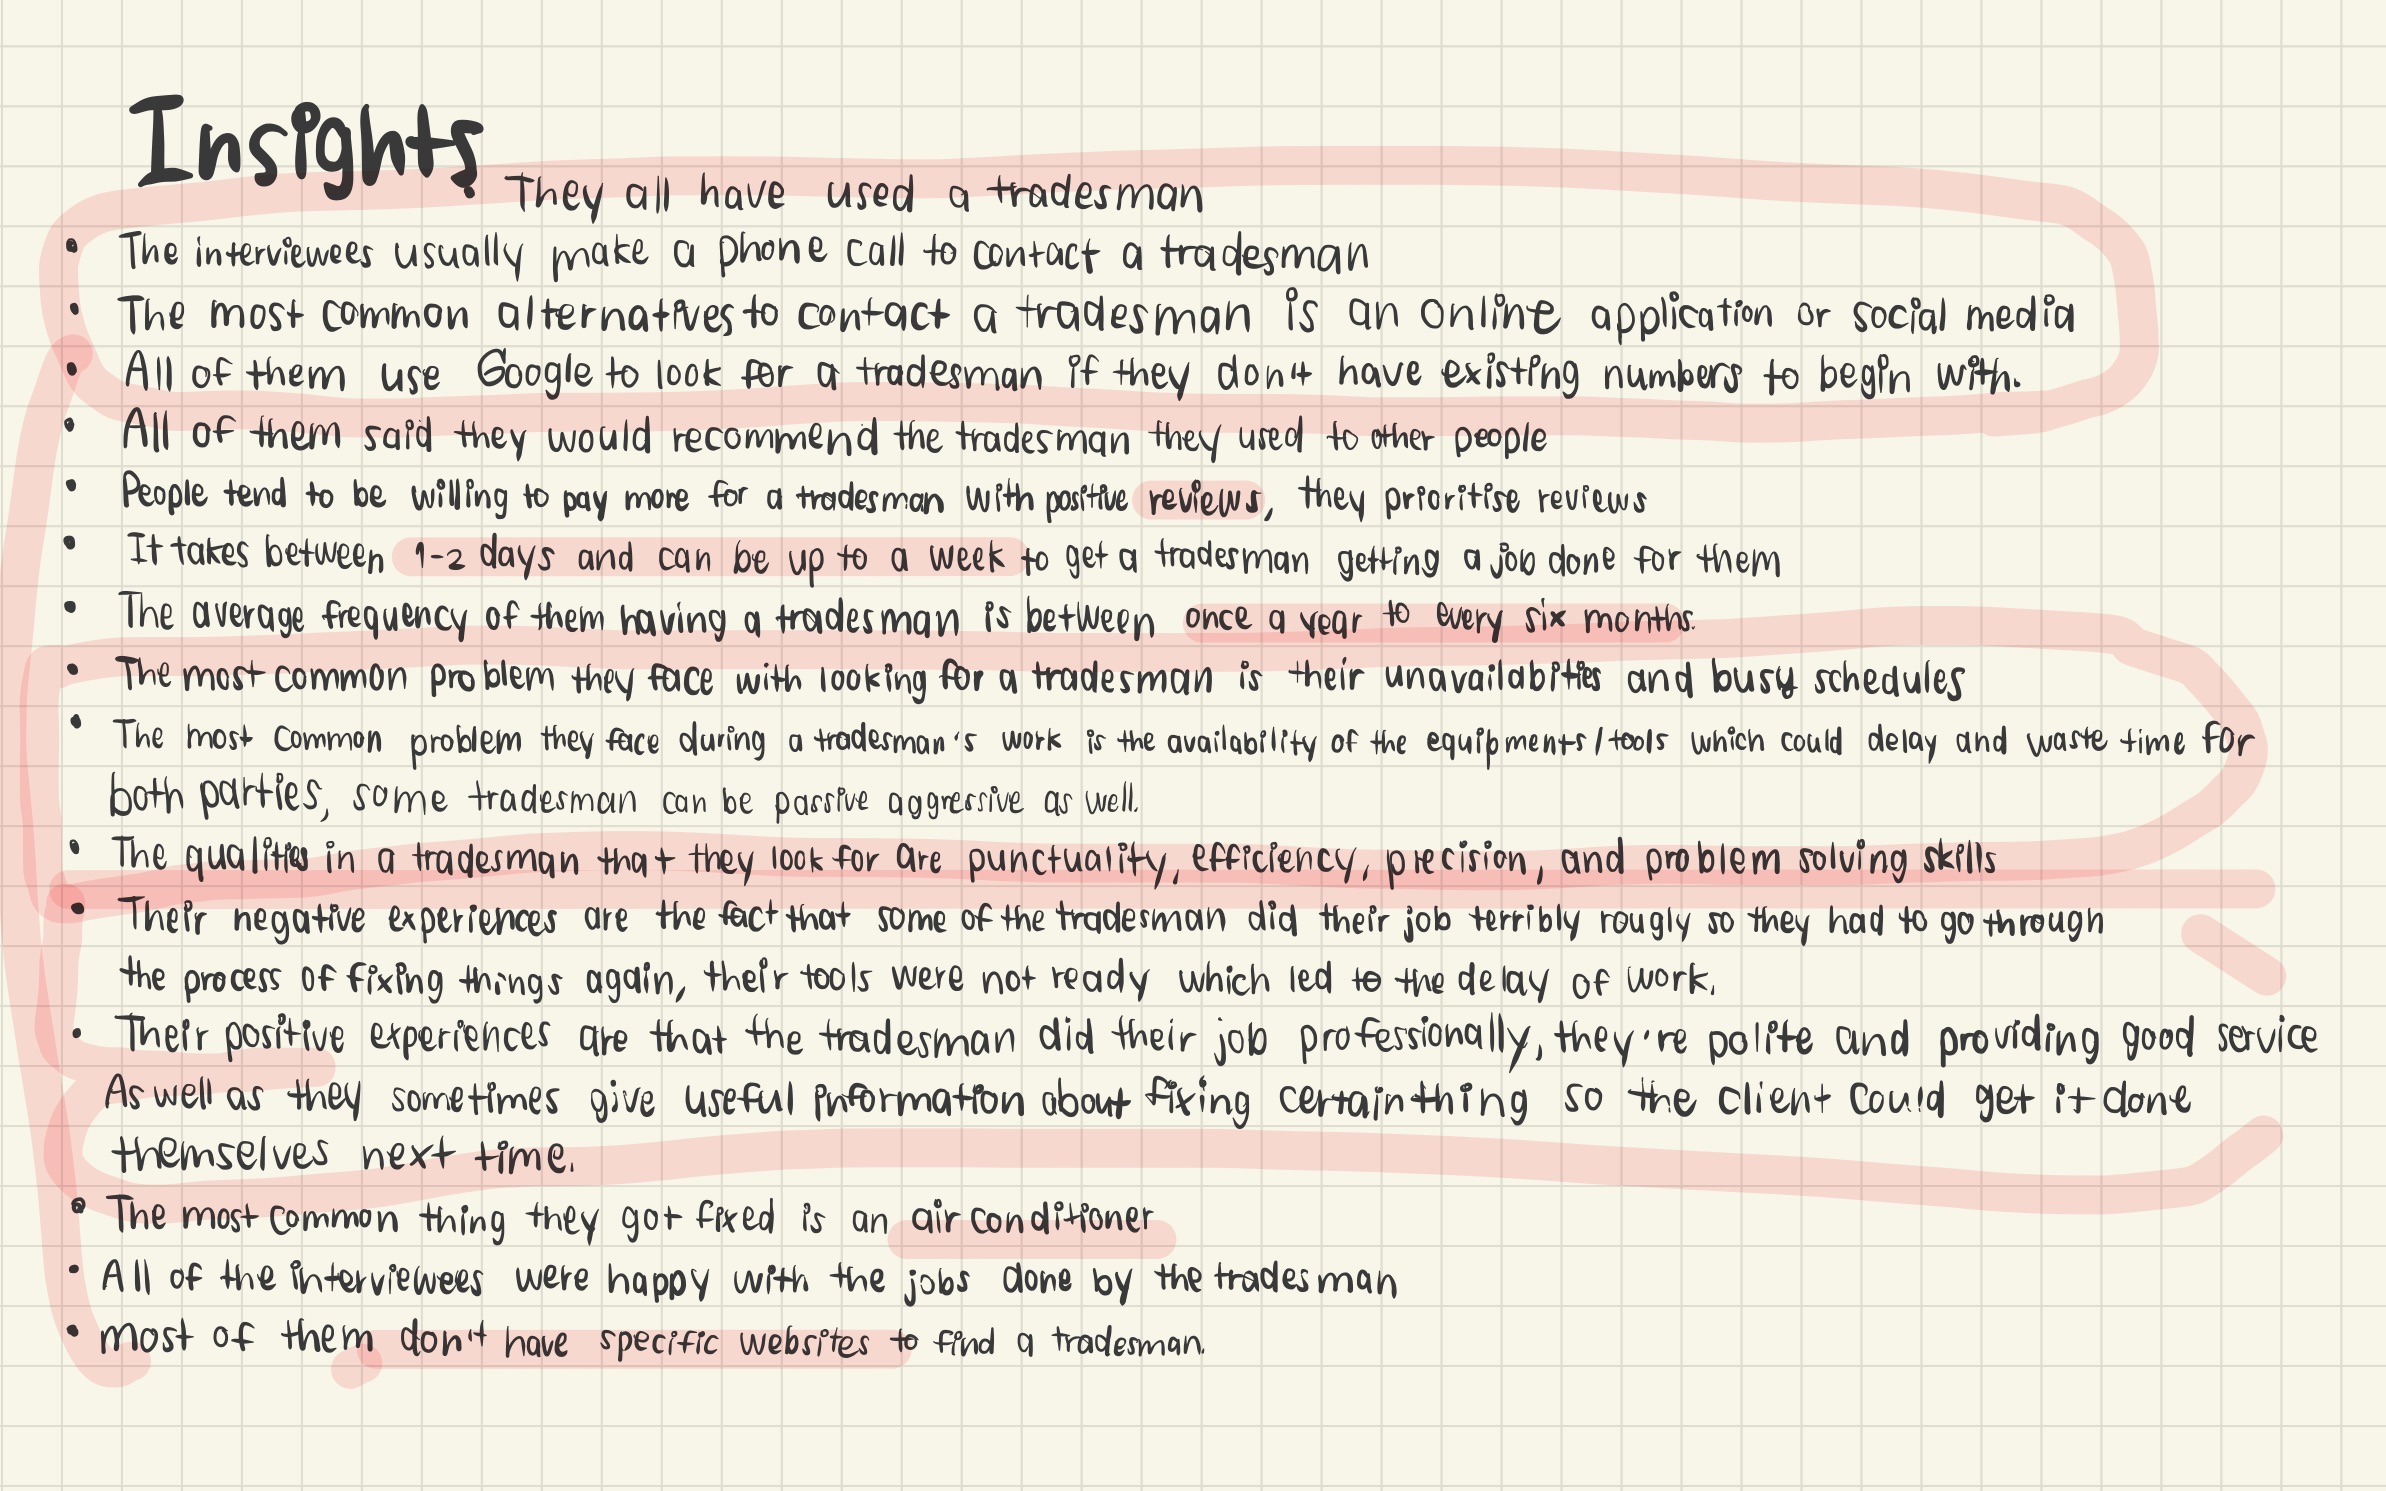 Insights
They all have used a tradesman
• The interviewees usually make a phone call to contact a tradesman
• The most common alternatives to contact a tradesman is an online application or social media
• All of them use Google to look for a tradesman if they don't have existing numbers to begin with.
• All of them said they would recommend the tradesman they used to other people
• People tend to be willing to pay more for a tradesman with positive reviews, they prioritise reviews
• It takes between 1-2 days and can be up to a week to get a tradesman getting a job done for them
• The average frequency of them having a tradesman is between once a year to every six months.
• The most common problem they face with looking for a tradesman is their unavailabities and busy schedules
• The most common problem they face during a tradesman's work is the availability of the equipments/tools which could delay and waste time for
both parties, some tradesman can be passive aggressive as well.
• The qualities in a tradesman that they look for are punctuality, efficiency, precision, and problem solving skills
• Their negative experiences are the fact that some of the tradesman did their job terribly rougly so they had to go through
the process of fixing things again, their tools were not ready which led to the delay of work.
• Their positive experiences are that the tradesman did their job professionally, they're polite and providing good service
As well as they sometimes give useful information about fixing certain thing so the client could get it done
themselves next time.
• The most common thing they got fixed is an air conditioner
• All of the interviewees were happy with the jobs done by the tradesman
• most of them don't have specific websites to find a tradesman.